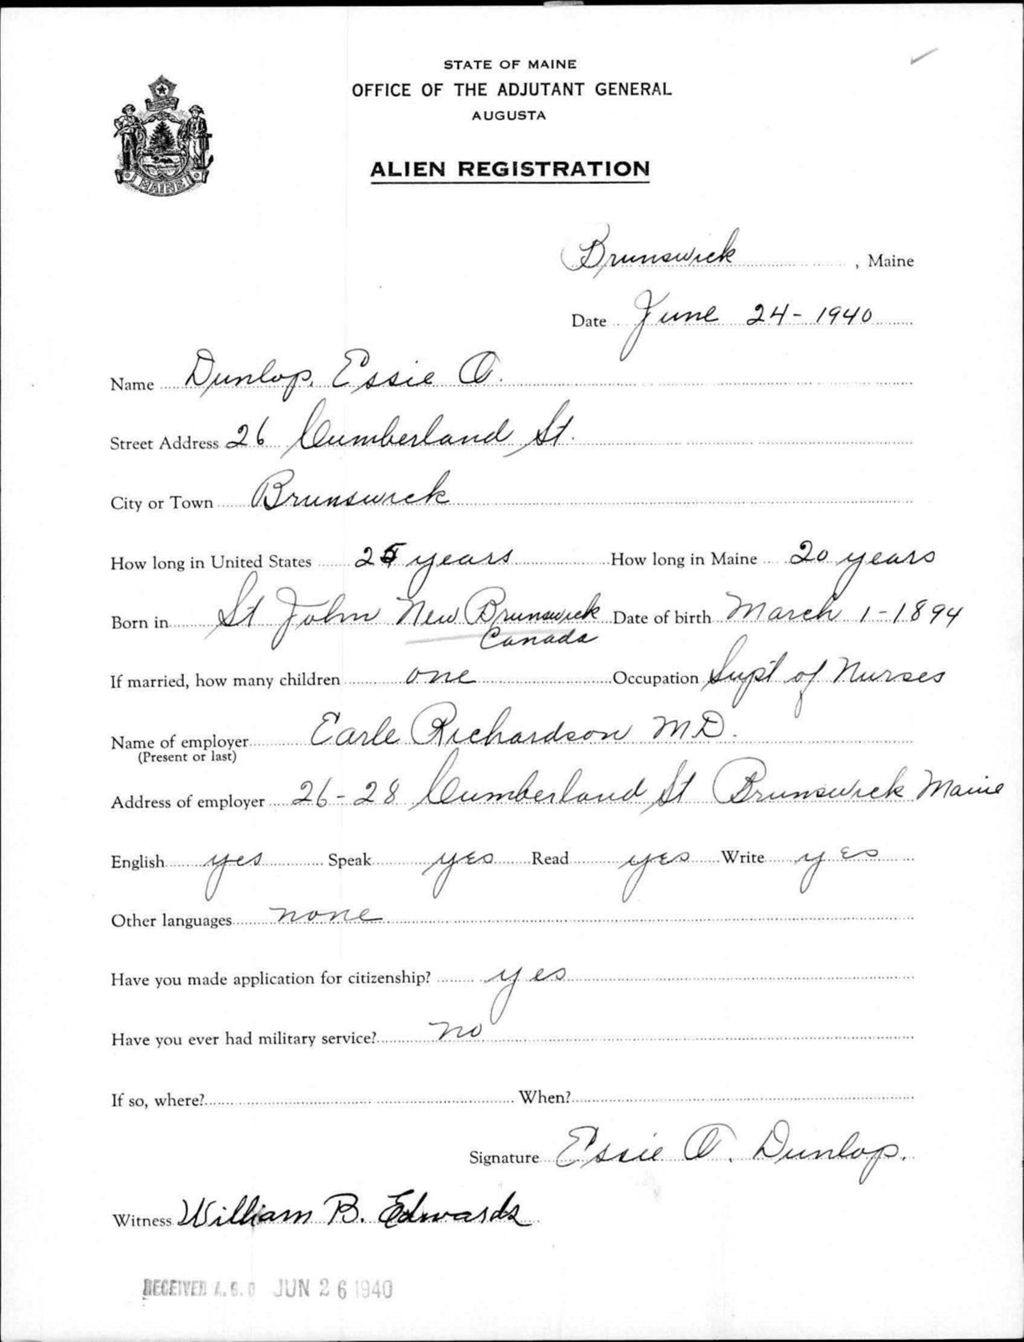 STATE OF MAINE
OFFICE OF THE ADJUTANT GENERAL
AUGUSTA
ALIEN REGISTRATION
MAINE
Brunswick, Maine
Date June 24-1940
Name Dunlop, Essie O.
Street Address 26 Cumberland St.
City or Town Brunswick
How long in United States 25 years How long in Maine 20 years
Born in St John New Brunswick Date of birth March 1-1894
Canada
If married, how many children one Occupation Sup't of Nurses
Name of employer Earle Richardson M.D.
(Present or last)
Address of employer 26-28 Cumberland St Brunswick Maine
English yes Speak yes Read yes Write yes
Other languages none
Have you made application for citizenship? yes
Have you ever had military service? no
If so, where? When?
Signature Essie O. Dunlop.
Witness William B. Edwards
RECEIVED A. G. O JUN 26 1940